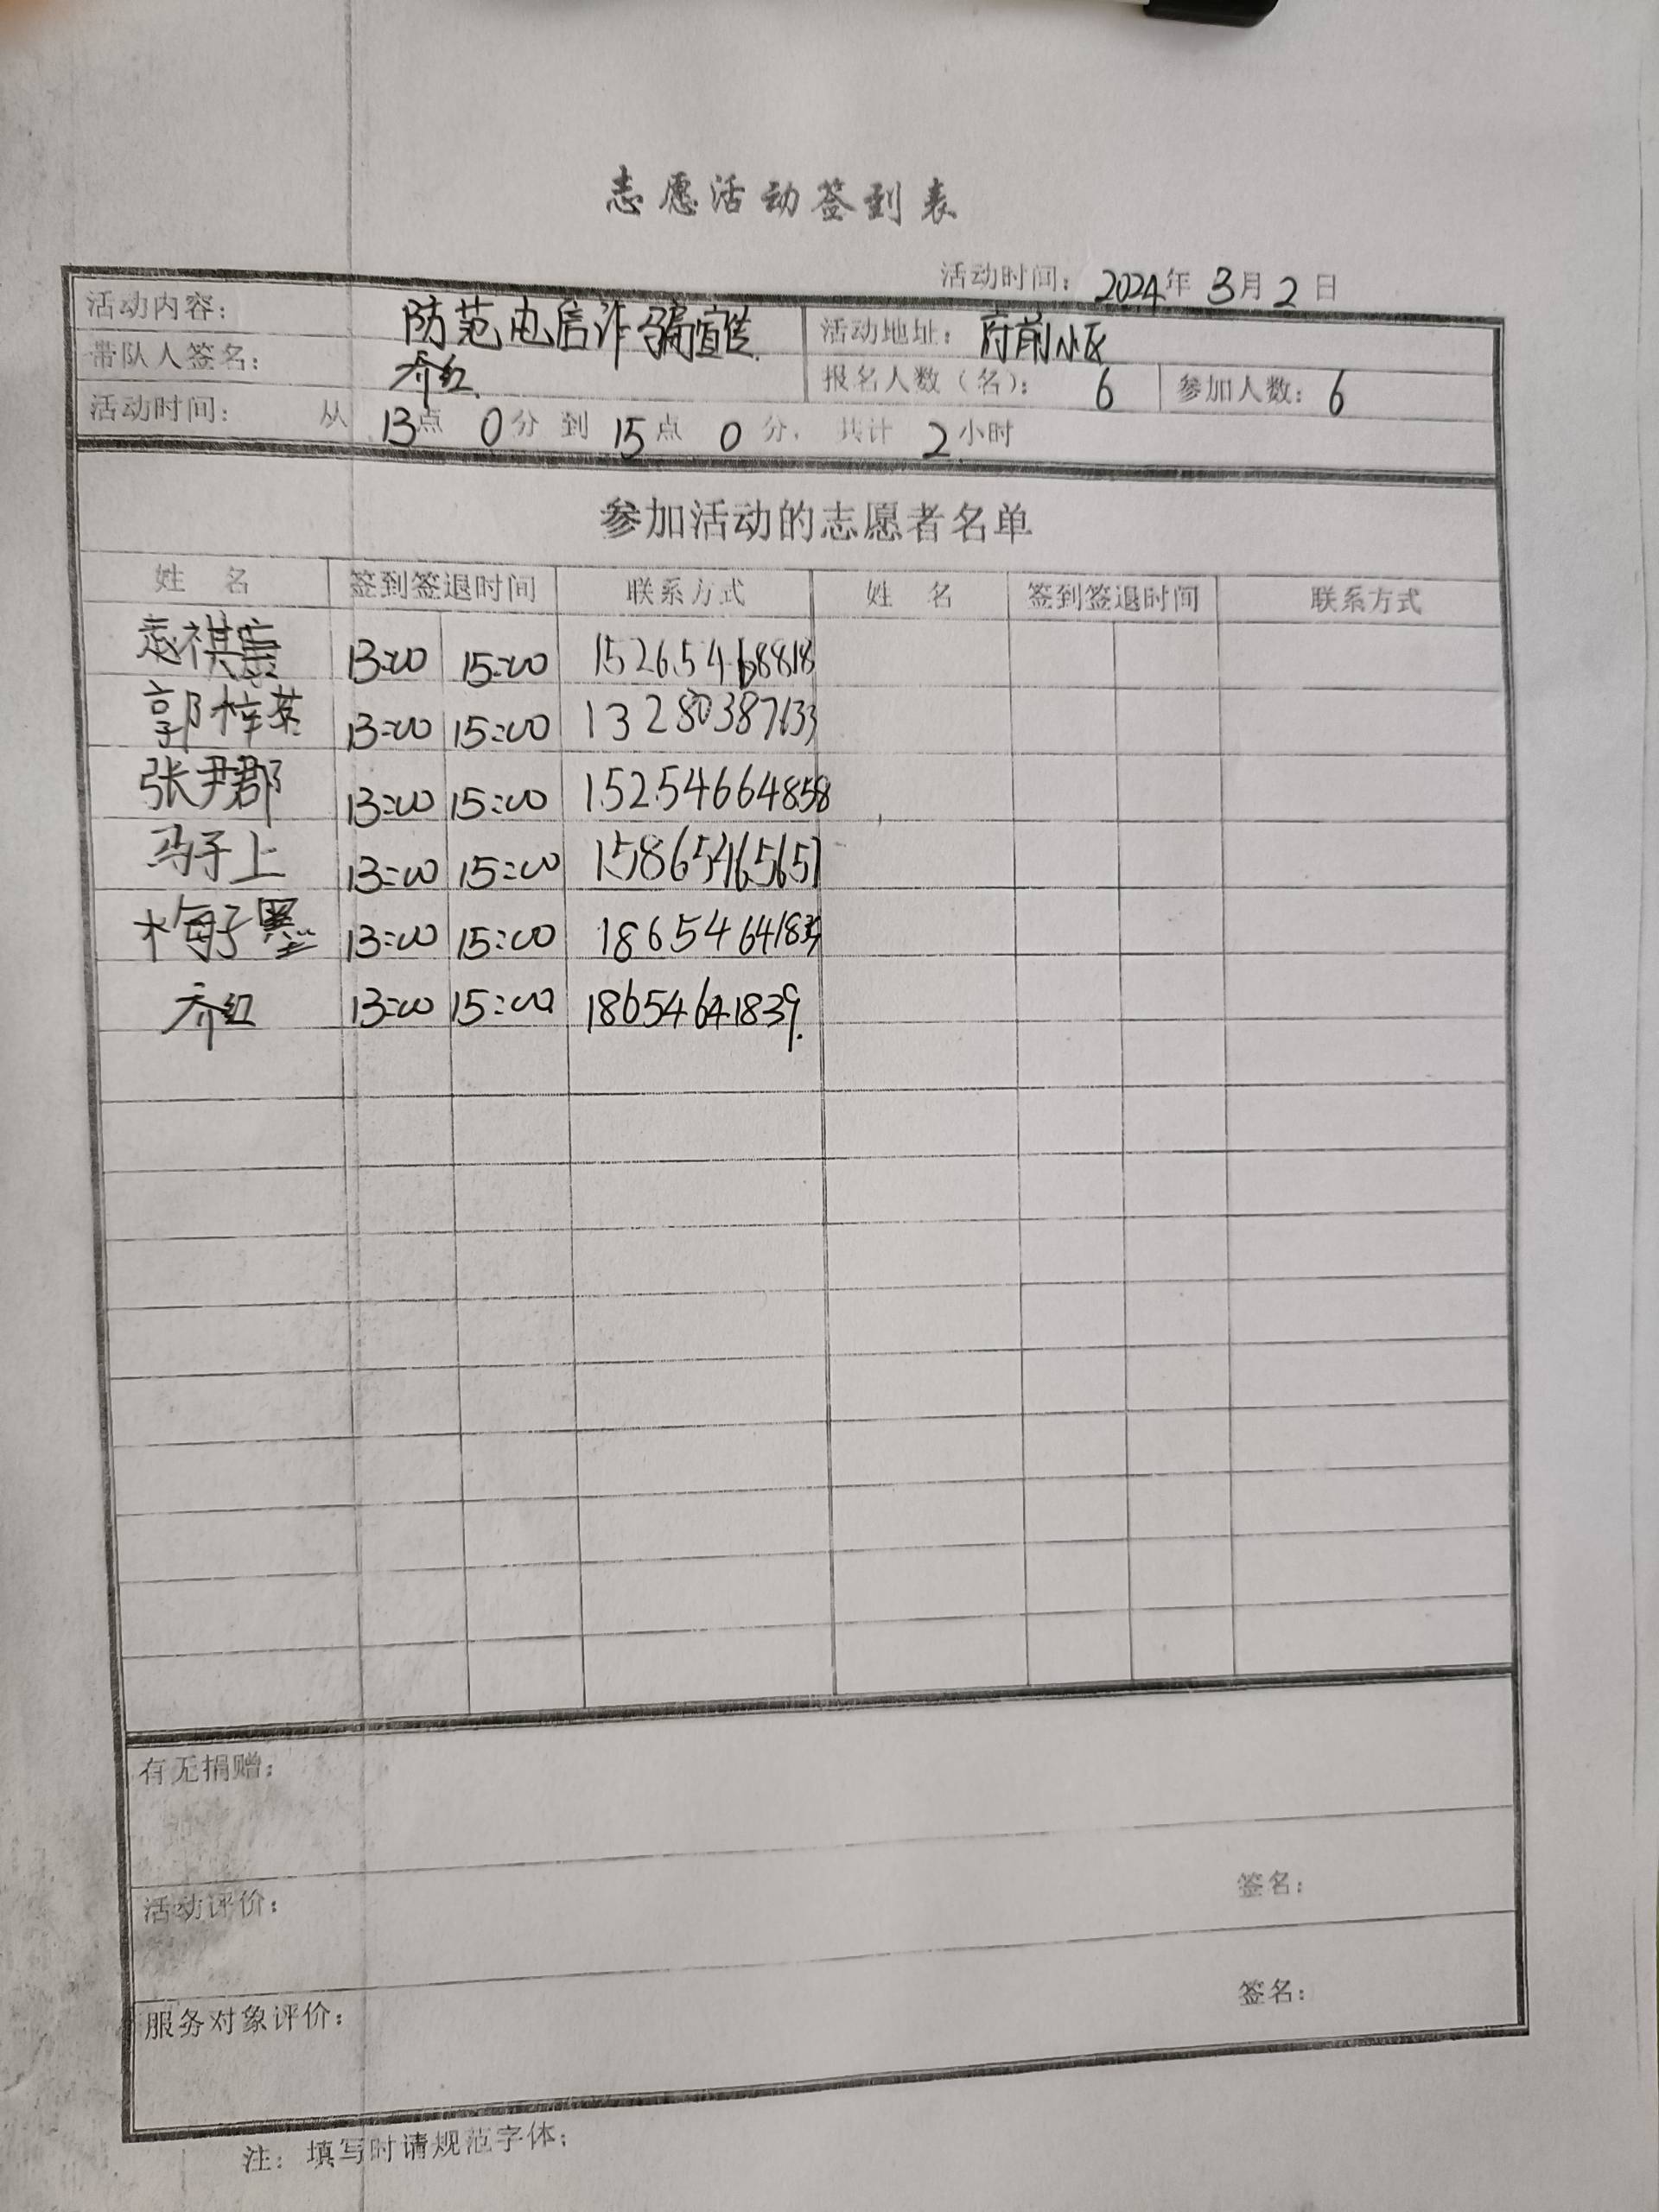 志愿活动签到表
活动时间：2024年 3月 2日
活动内容： 防范电信诈骗宣传 活动地址： 府前小区
带队人签名： 乔红 报名人数（名）： 6 参加人数： 6
活动时间： 从 13点 0分 到 15点 0分， 共计 2小时
参加活动的志愿者名单
姓 名 签到签退时间 联系方式 姓 名 签到签退时间 联系方式
13:00 15:00 15265468818
13:00 15:00 13280387133
张尹郡 13:00 15:00 15254664858
马子上 13:00 15:00 15865465657
梅子墨 13:00 15:00 18654641839
乔红 13:00 15:00 18654641839.
有无捐赠：
签名：
活动评价：
签名：
服务对象评价：
注：填写时请规范字体；